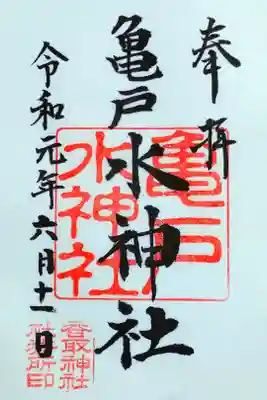 奉拝
亀戸水神社
令和元年六月十一日
亀戸
水神社
香取神社
社務所印